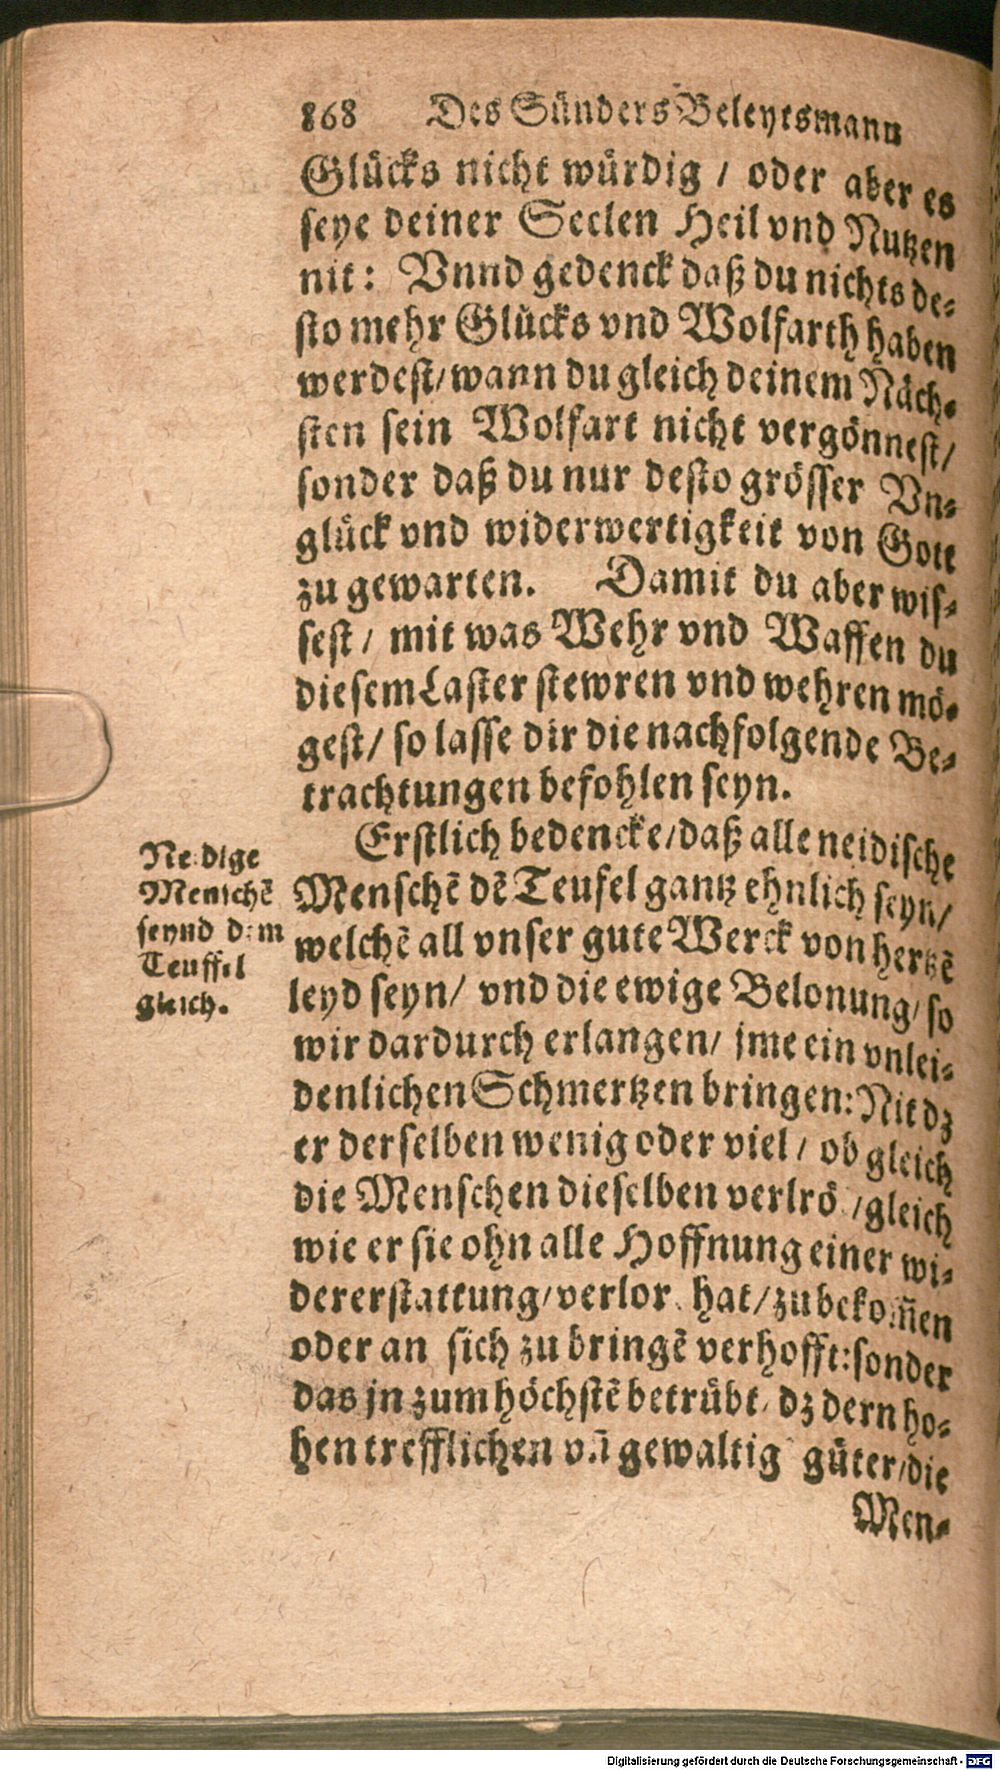 868 Des Sünders Beleytsmann
Glücks nicht würdig / oder aber es
seye deiner Seelen Heil vnd Nutzen
nit: Vnnd gedenck daß du nichts de-
sto mehr Glücks vnd Wolfarth haben
werdest/wann du gleich deinem Näch-
sten sein Wolfart nicht vergönnest/
sonder daß du nur desto grösser Vn-
glück vnd widerwertigkeit von Gott
zu gewarten. Damit du aber wis-
sest / mit was Wehr vnd Waffen du
diesem Laster stewren vnd wehren mö-
gest/ so lasse dir die nachfolgende Be-
trachtungen befohlen seyn.
Erstlich bedencke/daß alle neidische
Menschē dē Teufel gantz ehnlich seyn/
welchē all vnser gute Werck von hertzē
leyd seyn/ vnd die ewige Belonung/ so
wir dardurch erlangen/ jme ein vnlei-
denlichen Schmertzen bringen: Nit dz
er derselben wenig oder viel / ob gleich
die Menschen dieselben verlrö /gleich
wie er sie ohn alle Hoffnung einer wi-
dererstattung/verlor hat/zubekom̄en
oder an sich zu bringē verhofft:sonder
das jn zum höchstē betrübt, dz dern ho-
hen trefflichen vn̄ gewaltig güter/die
Men-
Neidige
Menschē
seynd dem
Teuffel
gleich.
Digitalisierung gefördert durch die Deutsche Forschungsgemeinschaft - DFG